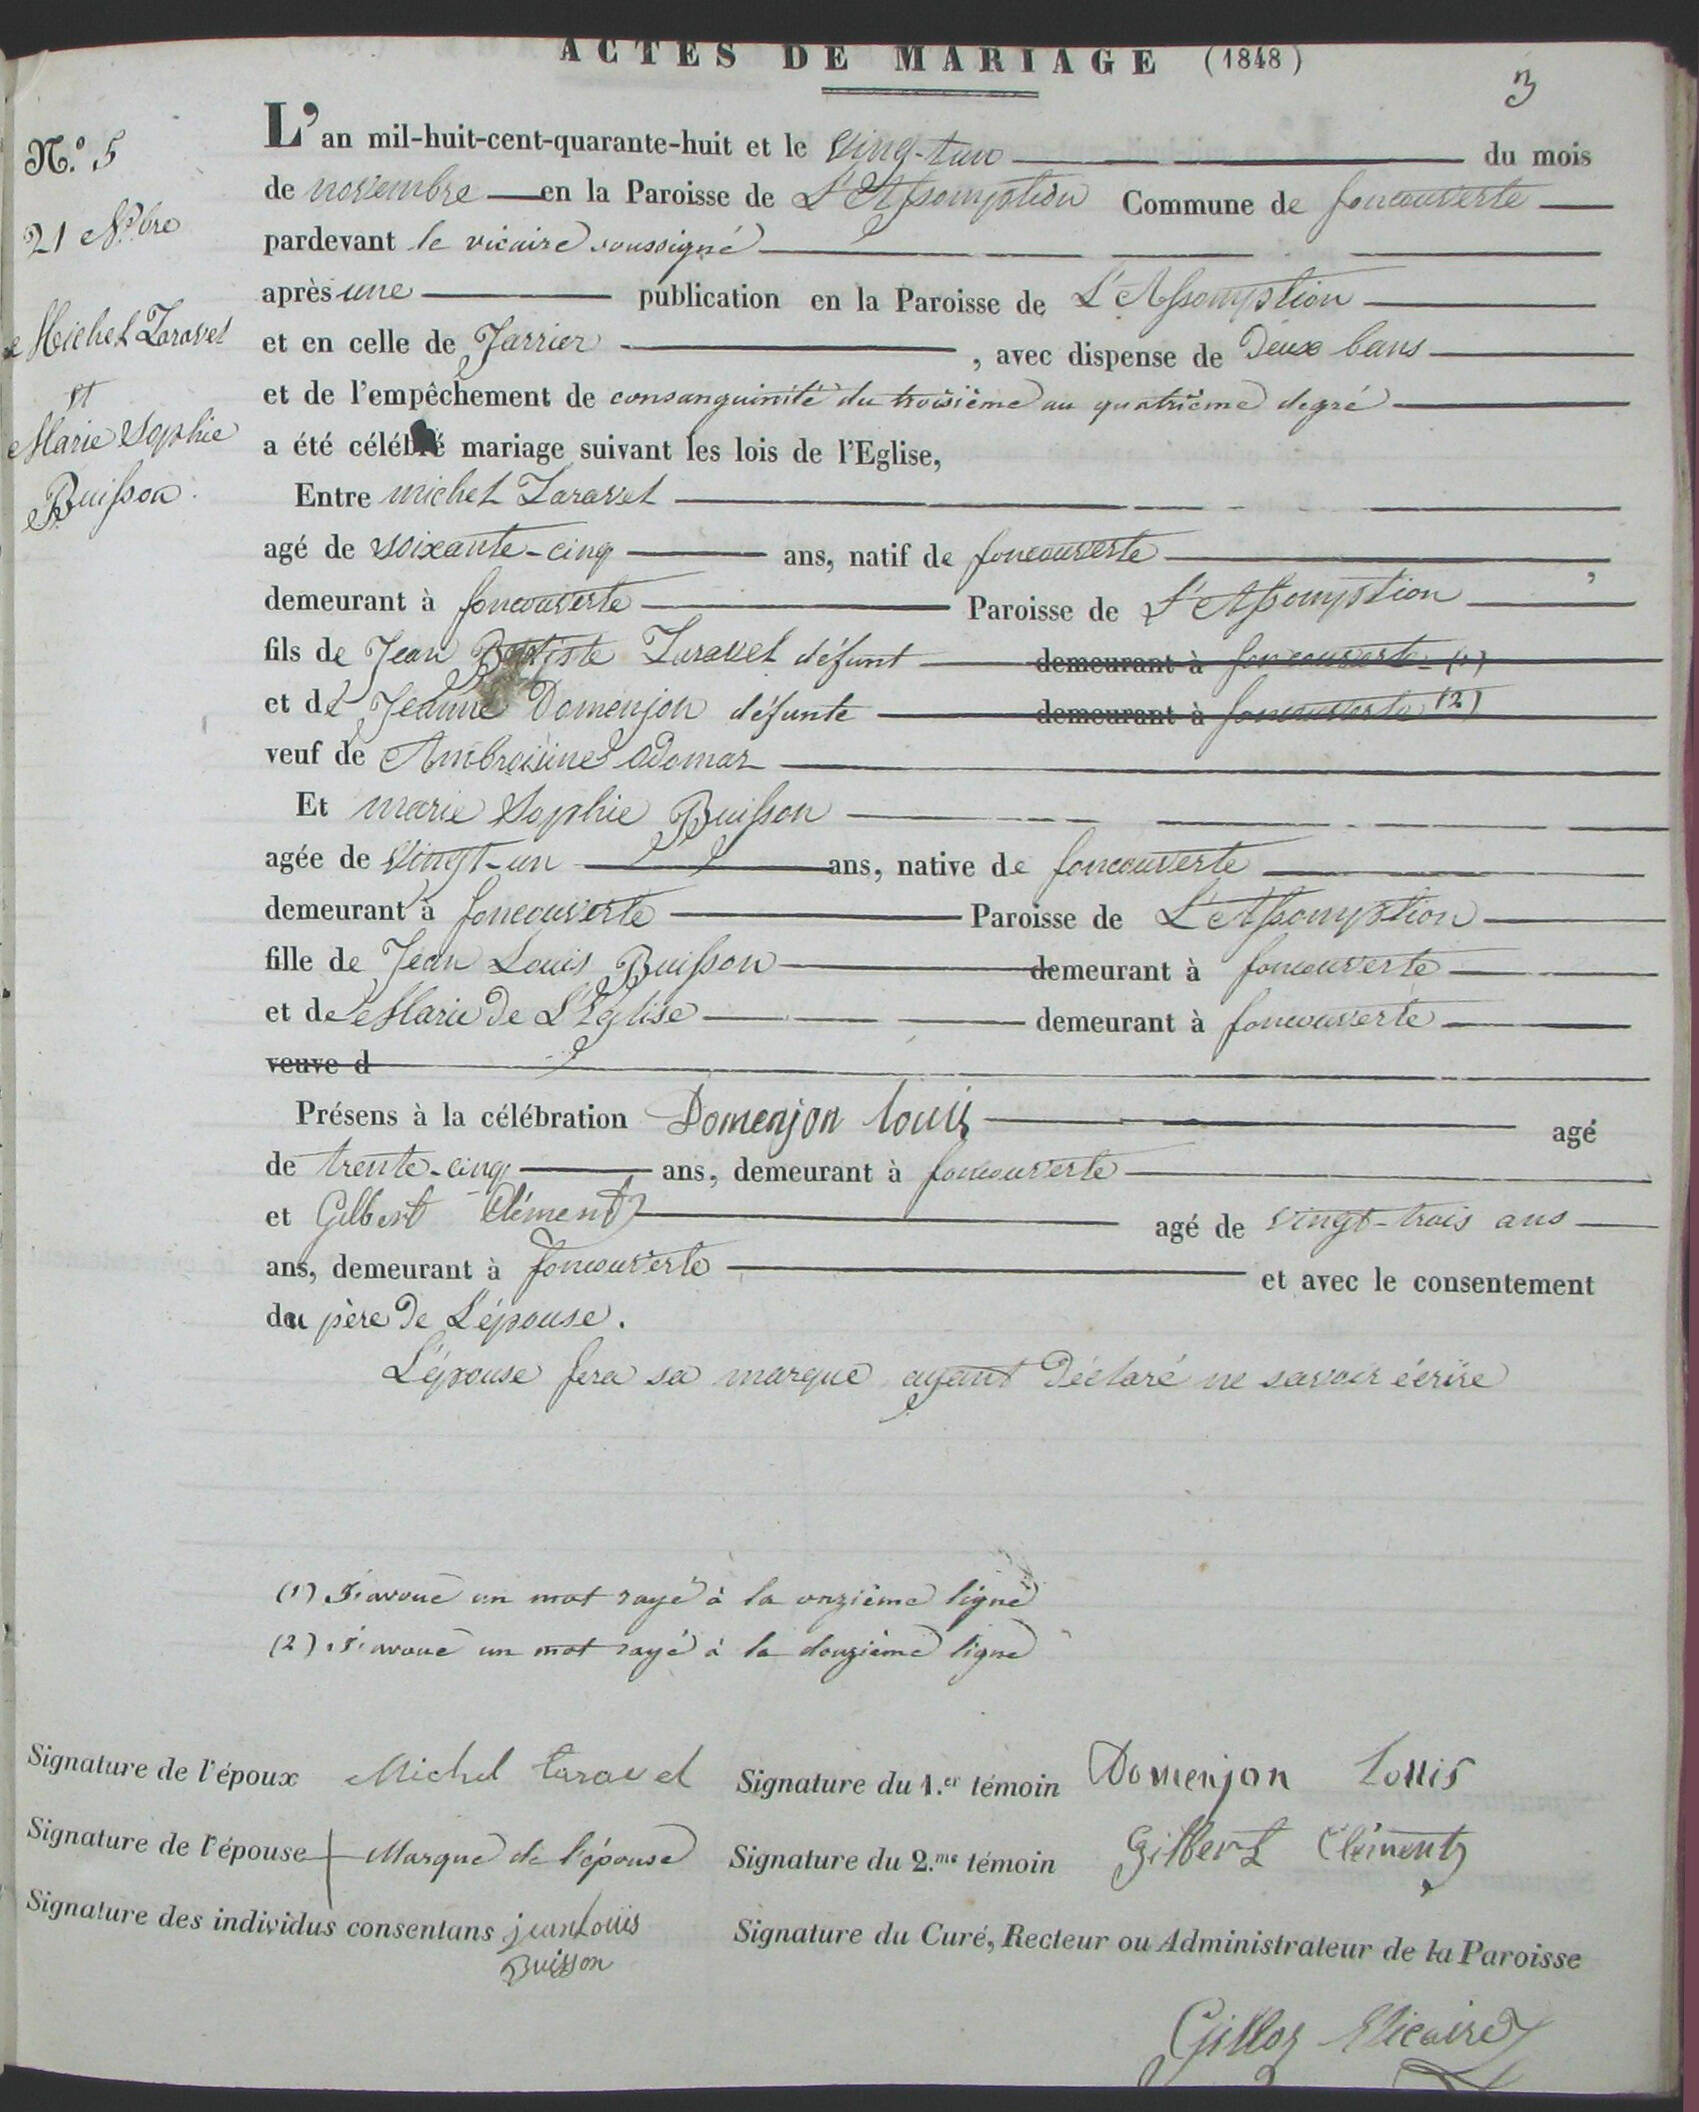 ACTES DE MARIAGE (1848)
3
N.º 5
21 9bre
Michel Taravel
et
Marie Sophie
Buisson.
L'an mil-huit-cent-quarante-huit et le vingt-un du mois
de novembre en la Paroisse de L'Assomption Commune de foncouverte
pardevant le vicaire soussigné
après une publication en la Paroisse de L'Assomption
et en celle de Jarrier , avec dispense de Deux bans
et de l'empêchement de consanguinité du troisième au quatrième degré
a été célébré mariage suivant les lois de l'Eglise,
Entre michel Taravel
agé de soixante-cinq ans, natif de foncouverte
demeurant à foncouverte Paroisse de L'Assomption ,
fils de Jean Baptiste Taravel défunt demeurant à foncouverte (1)
et de Jeanne Domenjon défunte demeurant à foncouverte (2)
veuf de Ambroisine adomar
Et marie Sophie Buisson
agée de vingt-un ans, native de foncouverte
demeurant à foncouverte Paroisse de L'Assomption
fille de Jean Louis Buisson demeurant à foncouverte
et de Marie De L'Eglise demeurant à foncouverte
veuve d
Présens à la célébration Domenjon Louis agé
de trente-cinq ans, demeurant à foncouverte
et Gilbert Clément agé de vingt-trois ans
ans, demeurant à foncouverte et avec le consentement
du père De L'épouse.
L'épouse fera sa marque ayant Déclaré ne savoir écrire
(1) J'avoue un mot rayé à la onzième ligne
(2) J'avoue un mot rayé à la douzième ligne
Signature de l'époux Michel taravel Signature du 1.er témoin Domenjon Louis
Signature de l'épouse + Marque de l'épouse Signature du 2.me témoin Gilbert Clément
Signature des individus consentans jean Louis Buisson Signature du Curé, Recteur ou Administrateur de la Paroisse
Gilloz Vicaire